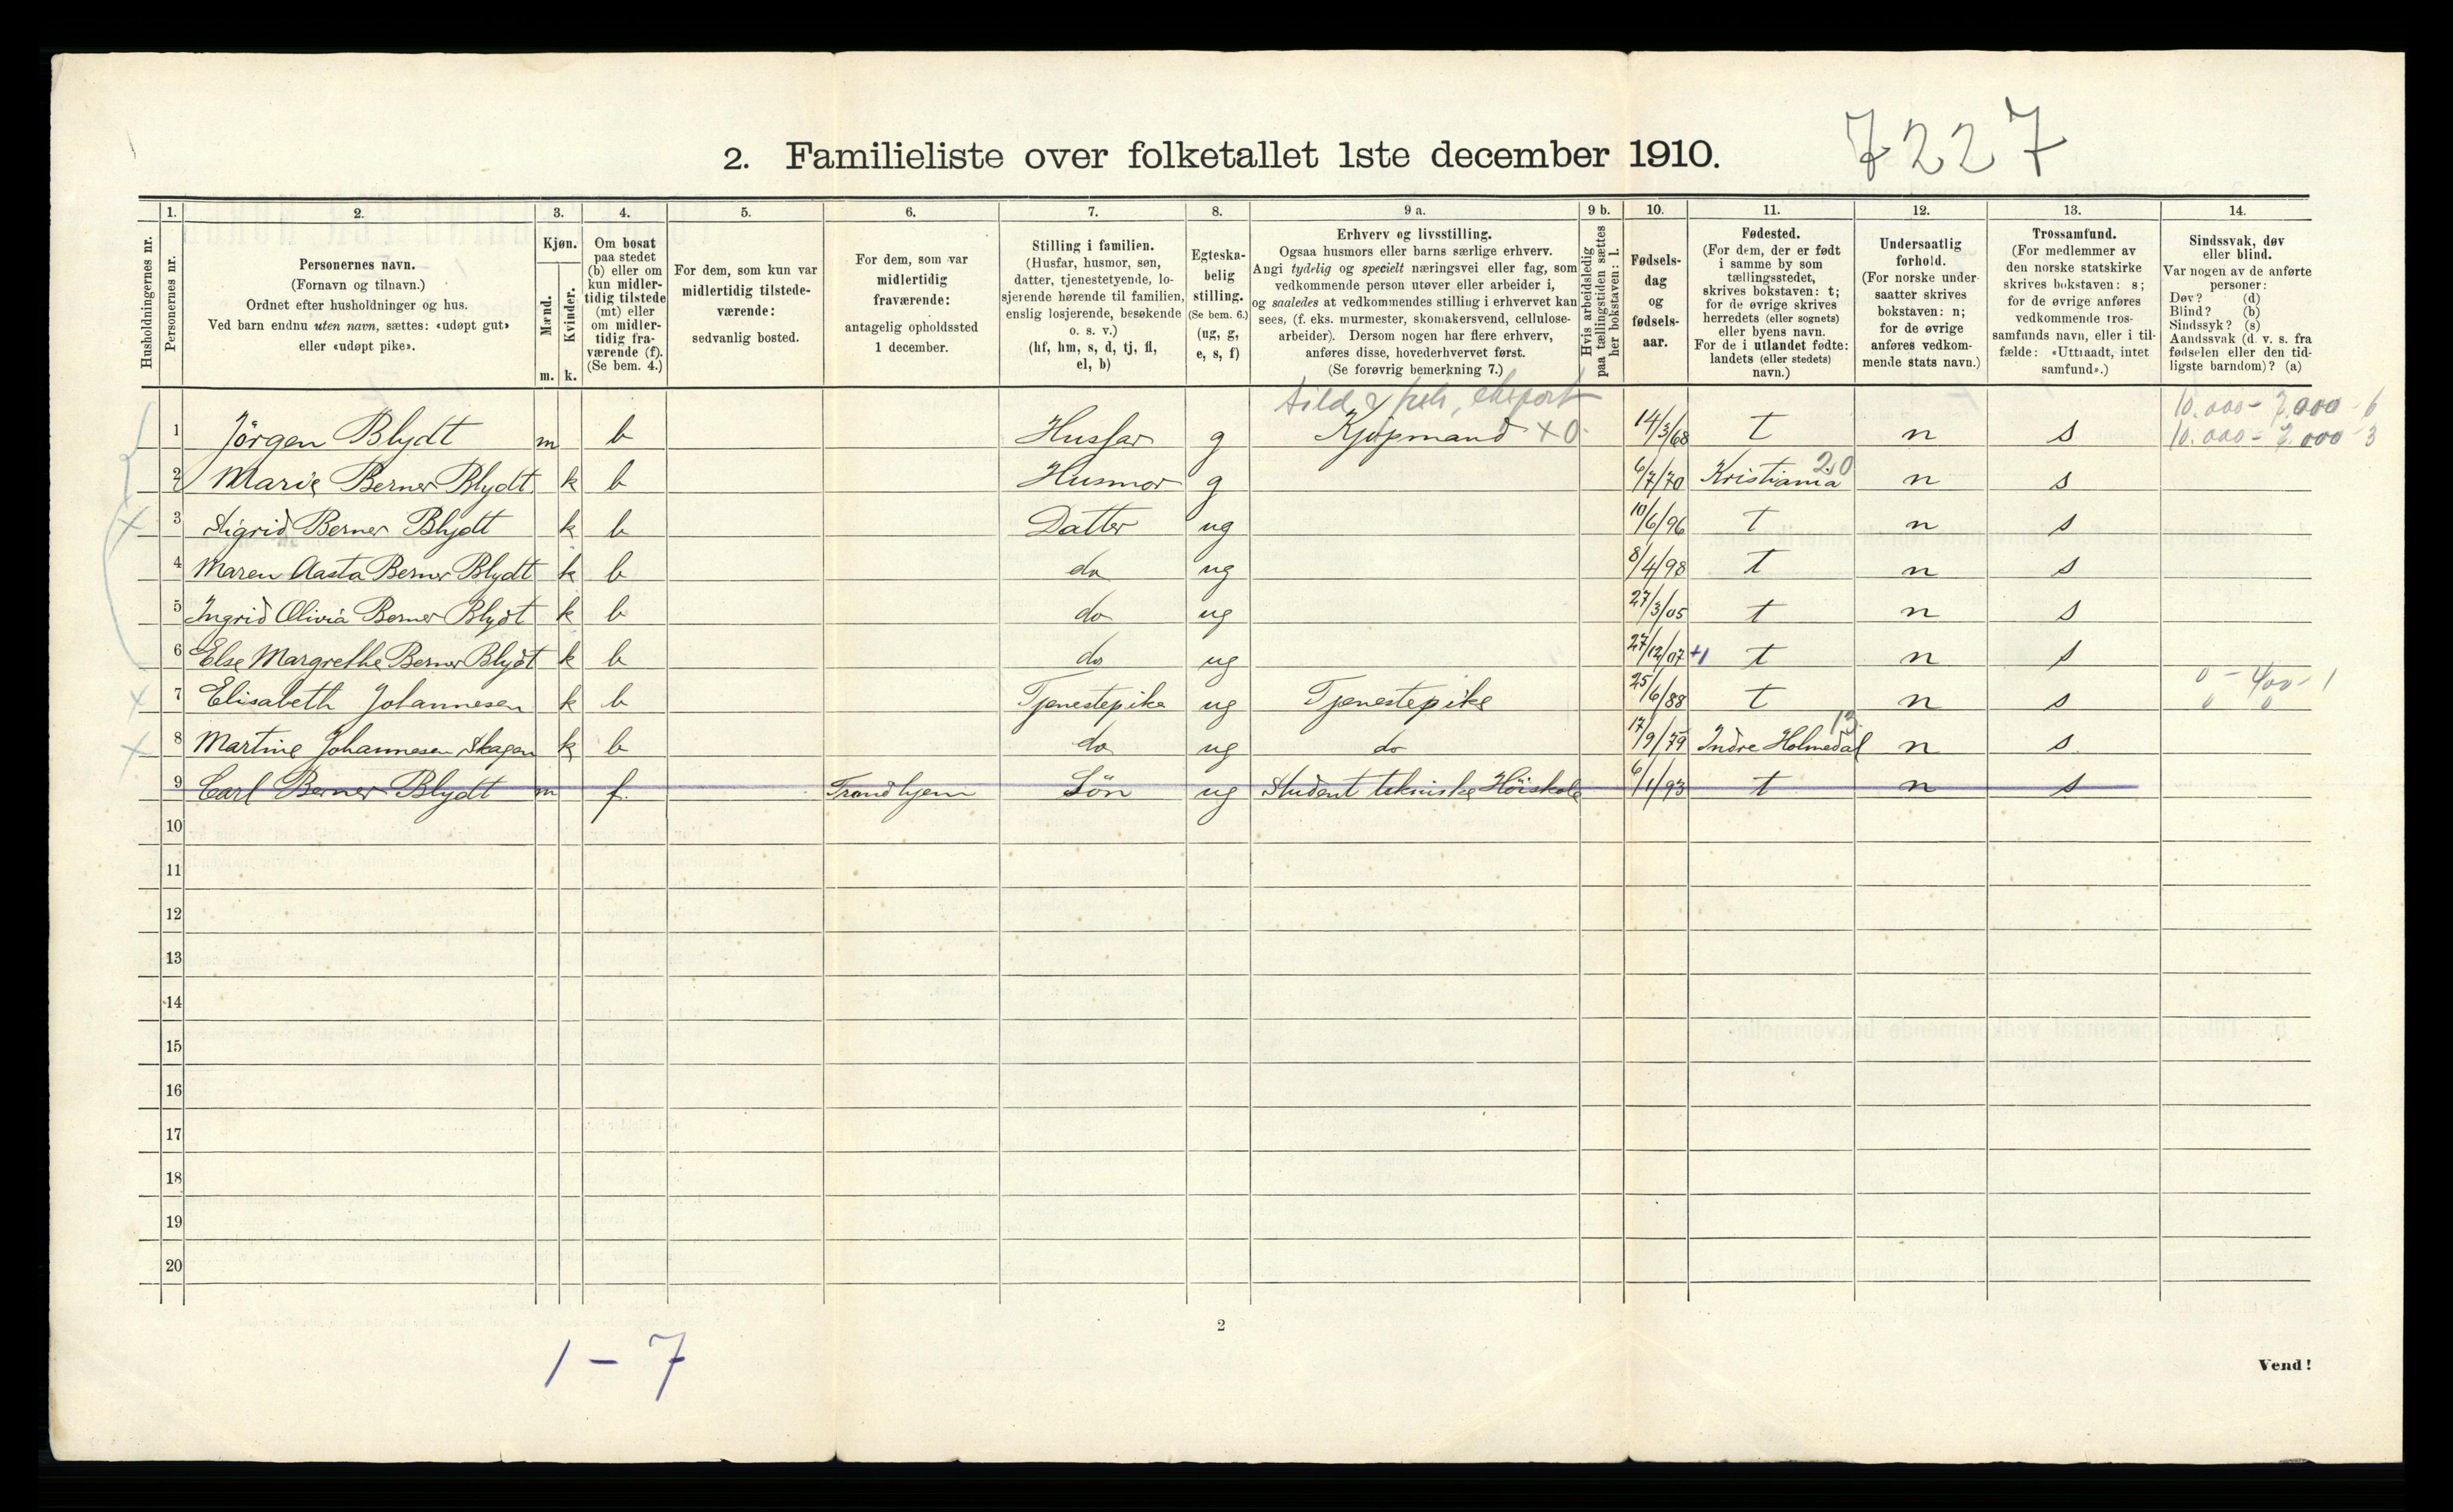 7227
2. Familieliste over folketallet 1ste december 1910.
1. 2. 3. 4. 5. 6. 7. 8. 9 a. 9 b. 10. 11. 12. 13. 14.
Husholdningernes nr.
Personernes nr.
Personernes navn.
(Fornavn og tilnavn.)
Ordnet efter husholdninger og hus.
Ved barn endnu uten navn, sættes: «udøpt gut»
eller «udøpt pike».
Kjøn.
Mænd.
Kvinder.
m. k.
Om bosat
paa stedet
(b) eller om
kun midler-
tidig tilstede
(mt) eller
om midler-
tidig fra-
værende (f).
(Se bem. 4.)
For dem, som kun var
midlertidig tilstede-
værende:
sedvanlig bosted.
For dem, som var
midlertidig
fraværende:
antagelig opholdssted
1 december.
Stilling i familien.
(Husfar, husmor, søn,
datter, tjenestetyende, lo-
sjerende hørende til familien,
enslig losjerende, besøkende
o. s. v.)
(hf, hm, s, d, tj, fl,
el, b)
Egteska-
belig
stilling.
(Se bem. 6.)
(ug, g,
e, s, f)
Erhverv og livsstilling.
Ogsaa husmors eller barns særlige erhverv.
Angi tydelig og specielt næringsvei eller fag, som
vedkommende person utøver eller arbeider i,
og saaledes at vedkommendes stilling i erhvervet kan
sees, (f. eks. murmester, skomakersvend, cellulose-
arbeider). Dersom nogen har flere erhverv,
anføres disse, hovederhvervet først.
(Se forøvrig bemerkning 7.)
Hvis arbeidsledig
paa tællingstiden sættes
her bokstaven: l.
Fødsels-
dag
og
fødsels-
aar.
Fødested.
(For dem, der er født
i samme by som
tællingsstedet,
skrives bokstaven: t;
for de øvrige skrives
herredets (eller sognets)
eller byens navn.
For de i utlandet fødte:
landets (eller stedets)
navn.)
Undersaatlig
forhold.
(For norske under-
saatter skrives
bokstaven: n;
for de øvrige
anføres vedkom-
mende stats navn.)
Trossamfund.
(For medlemmer av
den norske statskirke
skrives bokstaven: s;
for de øvrige anføres
vedkommende tros-
samfunds navn, eller i til-
fælde: «Uttraadt, intet
samfund».)
Sindssvak, døv
eller blind.
Var nogen av de anførte
personer:
Døv? (d)
Blind? (b)
Sindssyk? (s)
Aandssvak (d. v. s. fra
fødselen eller den tid-
ligste barndom)? (a)
eksport 10.000 - 7.000 - 6
1 Jörgen Blydt m b Husfar g Kjøpmand X 0. 14/3/68 t n s 10.000 - 7.000 - 3
2 Marie Berner Blydt k b Husmor g 6/7/70 Kristiania 20 n s
3 Sigrid Berner Blydt k b Datter ug 10/6/96 t n s
4 Maren Aasta Berner Blydt k b do ug 8/4/98 t n s
5 Ingrid Olivia Berner Blydt k b do ug 27/3/05 t n s
6 Else Margrethe Berner Blydt k b do ug 27/12/07 +1 t n s
7 Elisabeth Johannesen k b Tjenestepike ug Tjenestepike 25/6/88 t n s 0 - 400 - 1
0 0
8 Martine Johannesen Skagen k b do ug do 17/9/79 Indre Holmedal 13. n s
9 Carl Berner Blydt m f. Trondhjem Sön ug Student tekniske Höiskole 6/1/93 t n s
10
11
12
13
14
15
16
17
18
19
20
2
1 - 7
Vend!